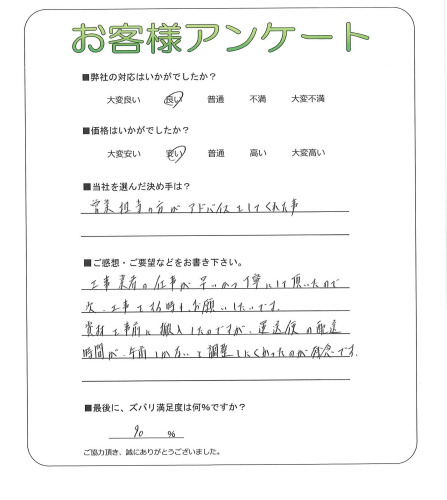 お客様アンケート
■弊社の対応はいかがでしたか？
大変良い 良い 普通 不満 大変不満
■価格はいかがでしたか？
大変安い 安い 普通 高い 大変高い
■当社を選んだ決め手は？
営業担当の方がアドバイスをしてくれた事
■ご感想・ご要望などをお書き下さい。
工事業者の仕事が早いかつ丁寧にして頂いたので
次、工事をする時もお願いしたいです。
資材を事前に搬入したのですが、運送便の配送
時間が、午前しか方いと調整しにくかったのが残念です。
■最後に、ズバリ満足度は何％ですか？
90 ％
ご協力頂き、誠にありがとうございました。